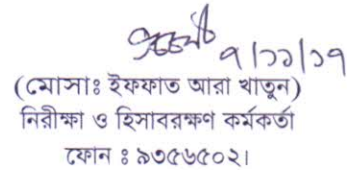 ৭/১১/১৭
(মোসাঃ ইফফাত আরা খাতুন)
নিরীক্ষা ও হিসাবরক্ষণ কর্মকর্তা
ফোন ঃ ৯৩৫৬৫০২।